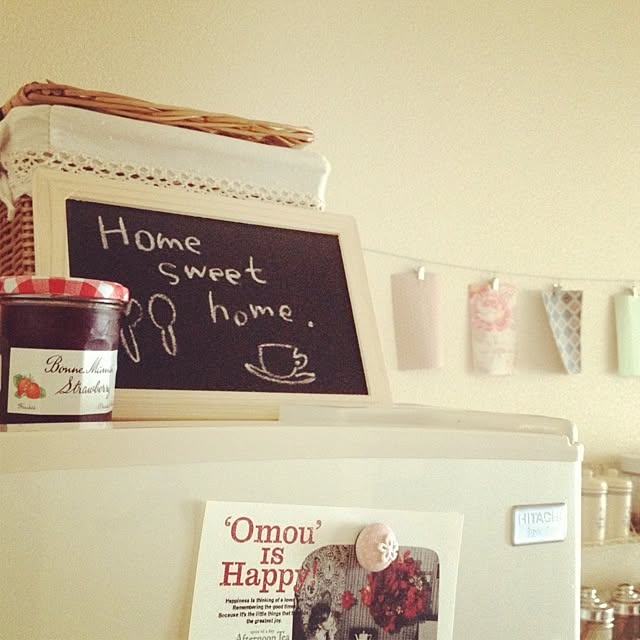 Home
sweet
home.
Bonne Maman
Strawberry
HITACHI
'Omou'
is
Happy!
Happiness is thinking of a loved
Remembering the good times
Because it's the little things that b
the greatest joy.
Afternoon Tea